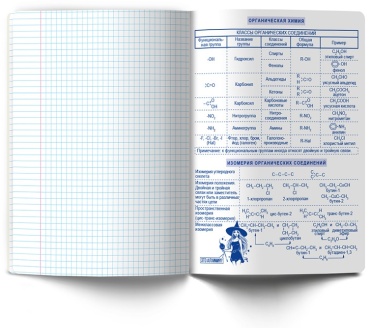 ОРГАНИЧЕСКАЯ ХИМИЯ
КЛАССЫ ОРГАНИЧЕСКИХ СОЕДИНЕНИЙ
Функциональ-ная группа Название группы Классы соединений Общая формула Пример
-OH Гидроксил Спирты R-OH C₂H₅OH этиловый спирт
Фенолы OH фенол
Карбонил Альдегиды CH₃CHO уксусный альдегид
Кетоны CH₃COCH₃ ацетон
Карбоксил Карбоновые кислоты CH₃COOH уксусная кислота
-NO₂ Нитрогруппа Нитро-соединения R-NO₂ CH₃NO₂ нитрометан
-NH₂ Аминогруппа Амины R-NH₂ NH₂ анилин
-F, -Cl, -Br, -I (Hal) Фтор, хлор, бром, йод (галоген) Галогено-производные R-Hal CH₃Cl хлористый метил
Примечание: к функциональным группам иногда относят двойную и тройную связи.
ИЗОМЕРИЯ ОРГАНИЧЕСКИХ СОЕДИНЕНИЙ
Изомерия углеродного скелета C-C-C-C
Изомерия положения. Двойная и тройная связи или заместитель могут быть в различных частях цепи
1-хлорпропан 2-хлорпропан бутен-1
Пространственная изомерия (цис-транс-изомерия) цис-бутен-2 транс-бутен-2
Межклассовая изомерия
бутен-1 циклобутан этиловый спирт диметиловый эфир
бутин-1 и бутадиен-1,3